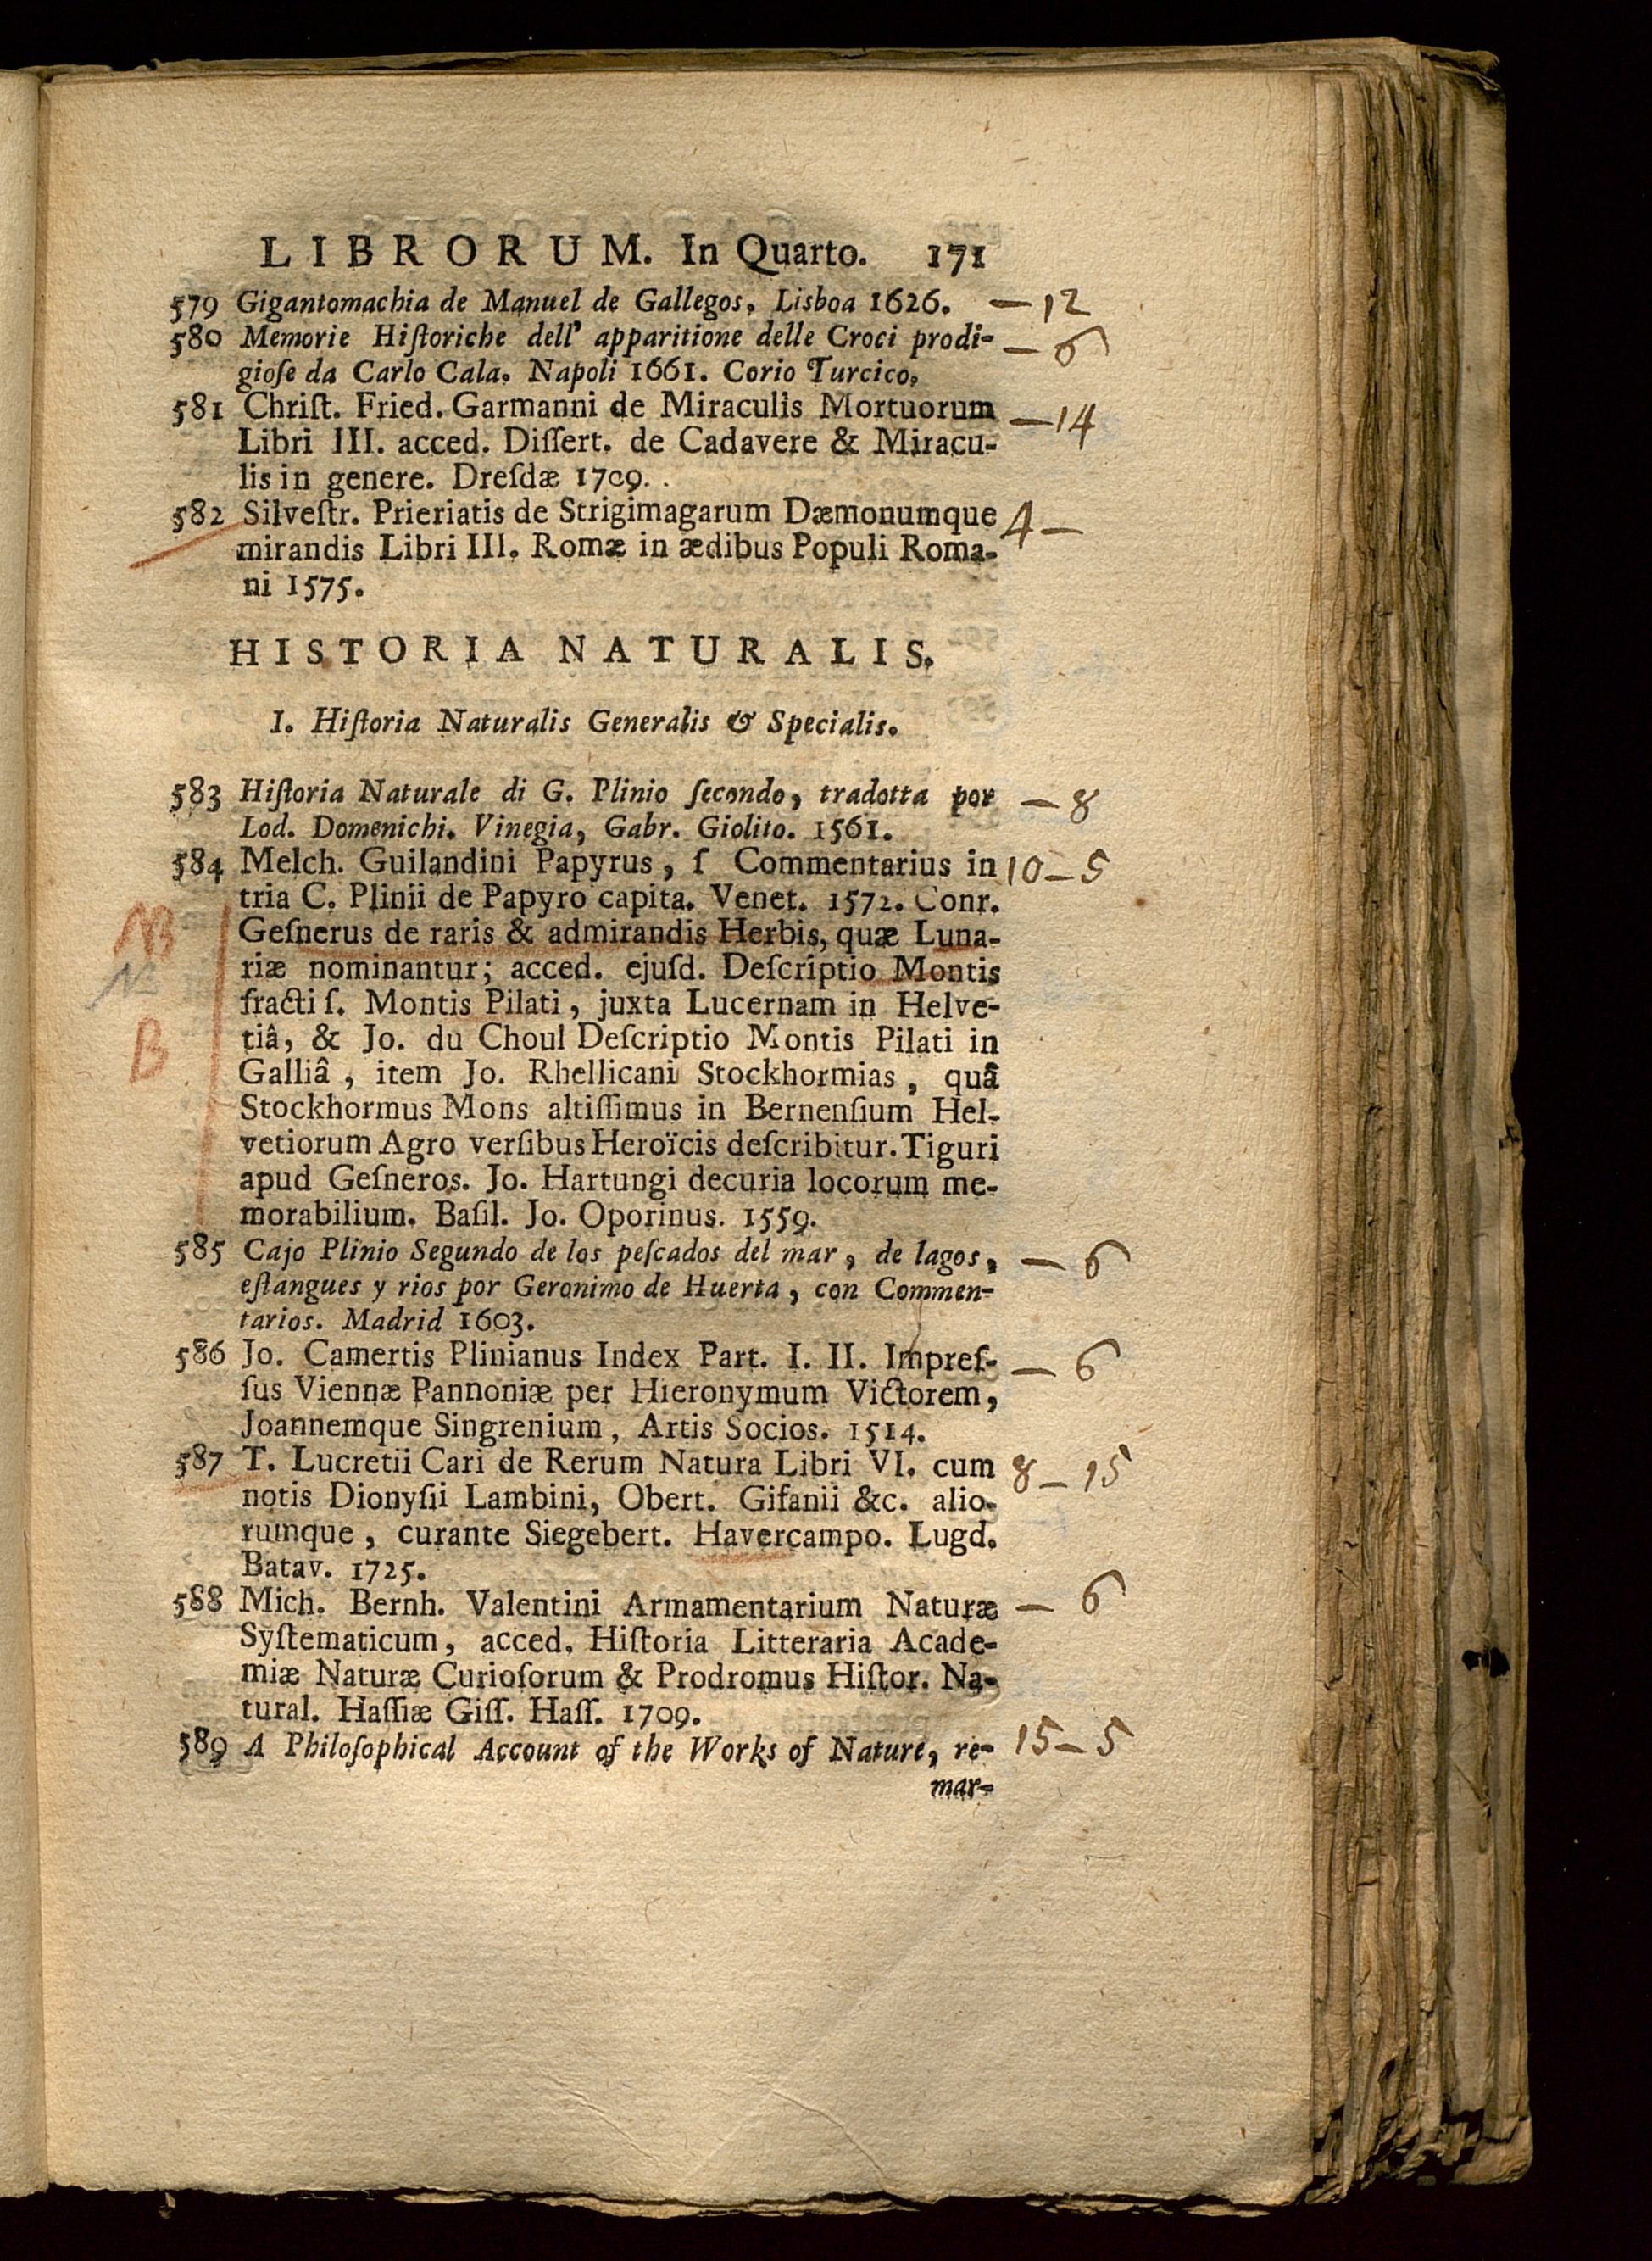 LIBRORUM. In Quarto. 171
579 Gigantomachia de Manuel de Gallegos, Lisboa 1626. — 12
580 Memorie Hiſtoriche dell' apparitione delle Croci prodi- — 6
gioſe da Carlo Cala. Napoli 1661. Corio Turcico.
581 Chriſt. Fried. Garmanni de Miraculis Mortuorum — 14
Libri III. acced. Diſſert. de Cadavere & Miracu-
lis in genere. Dreſdæ 1709.
582 Silveſtr. Prieriatis de Strigimagarum Dæmonumque 4 —
mirandis Libri III. Romæ in ædibus Populi Roma-
ni 1575.
HISTORIA NATURALIS.
I. Hiſtoria Naturalis Generalis & Specialis.
583 Hiſtoria Naturale di G. Plinio ſecondo, tradotta por — 8
Lod. Domenichi. Vinegia, Gabr. Giolito. 1561.
584 Melch. Guilandini Papyrus, ſ Commentarius in 10 — 5
tria C. Plinii de Papyro capita. Venet. 1572. Conr.
NB Geſnerus de raris & admirandis Herbis, quæ Luna-
riæ nominantur; acced. ejuſd. Deſcriptio Montis
fracti ſ. Montis Pilati, juxta Lucernam in Helve-
B tiâ, & Jo. du Choul Deſcriptio Montis Pilati in
Galliâ, item Jo. Rhellicani Stockhormias, quâ
Stockhormus Mons altiſſimus in Bernenſium Hel-
vetiorum Agro verſibus Heroïcis deſcribitur. Tiguri
apud Geſneros. Jo. Hartungi decuria locorum me-
morabilium. Baſil. Jo. Oporinus. 1559.
585 Cajo Plinio Segundo de los peſcados del mar, de lagos, — 6
eſtangues y rios por Geronimo de Huerta, con Commen-
tarios. Madrid 1603.
586 Jo. Camertis Plinianus Index Part. I. II. Impreſ- — 6
ſus Viennæ Pannoniæ per Hieronymum Victorem,
Joannemque Singrenium, Artis Socios. 1514.
587 T. Lucretii Cari de Rerum Natura Libri VI. cum 8 — 15
notis Dionyſii Lambini, Obert. Gifanii &c. alio-
rumque, curante Siegebert. Havercampo. Lugd.
Batav. 1725.
588 Mich. Bernh. Valentini Armamentarium Naturæ — 6
Syſtematicum, acced. Hiſtoria Litteraria Acade-
miæ Naturæ Curioſorum & Prodromus Hiſtor. Na-
tural. Haſſiæ Giſſ. Haſſ. 1709.
589 A Philoſophical Account of the Works of Nature, re- 15 — 5
mar-